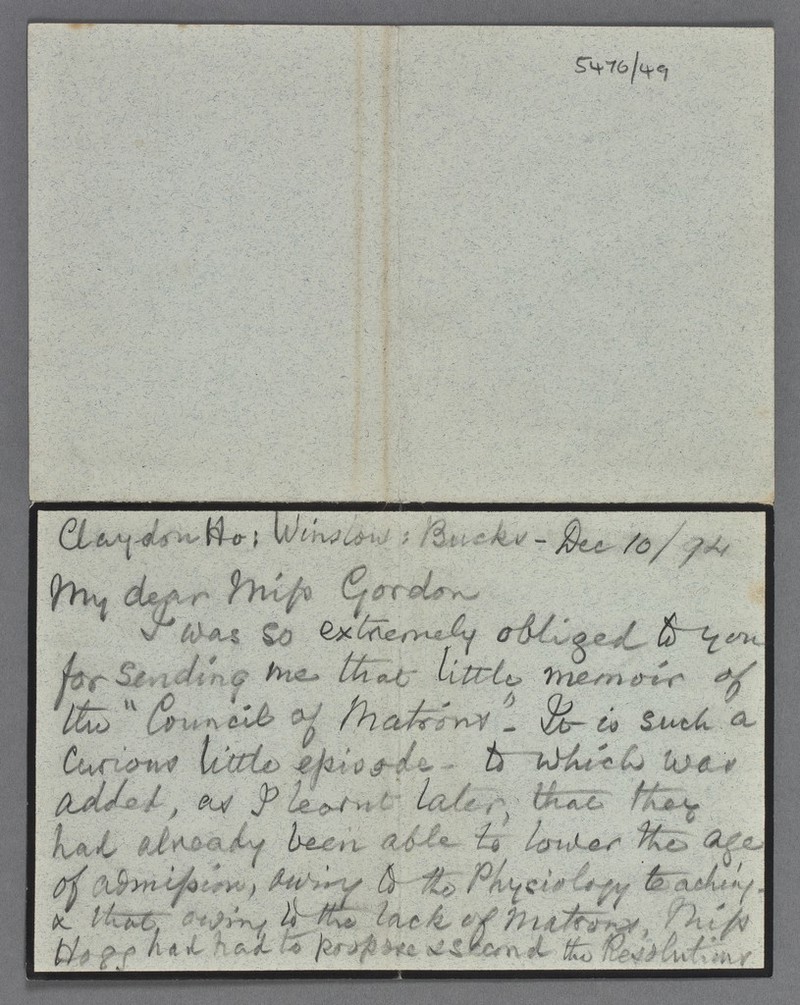 5476/49
Claydon Ho: Winslow: Bucks - Dec 10/94
My dear Miss Gordon
I was so extremely obliged to you
for sending me that little memoir of
the "Council of Matrons" - It is such a
curious little episode - to which was
added, as I learnt later, that they
had already been able to lower the age
of admission, owing to the Physiology teaching -
& that, owing to the lack of Matrons, Miss
Hogg had had to propose & second the Resolutions